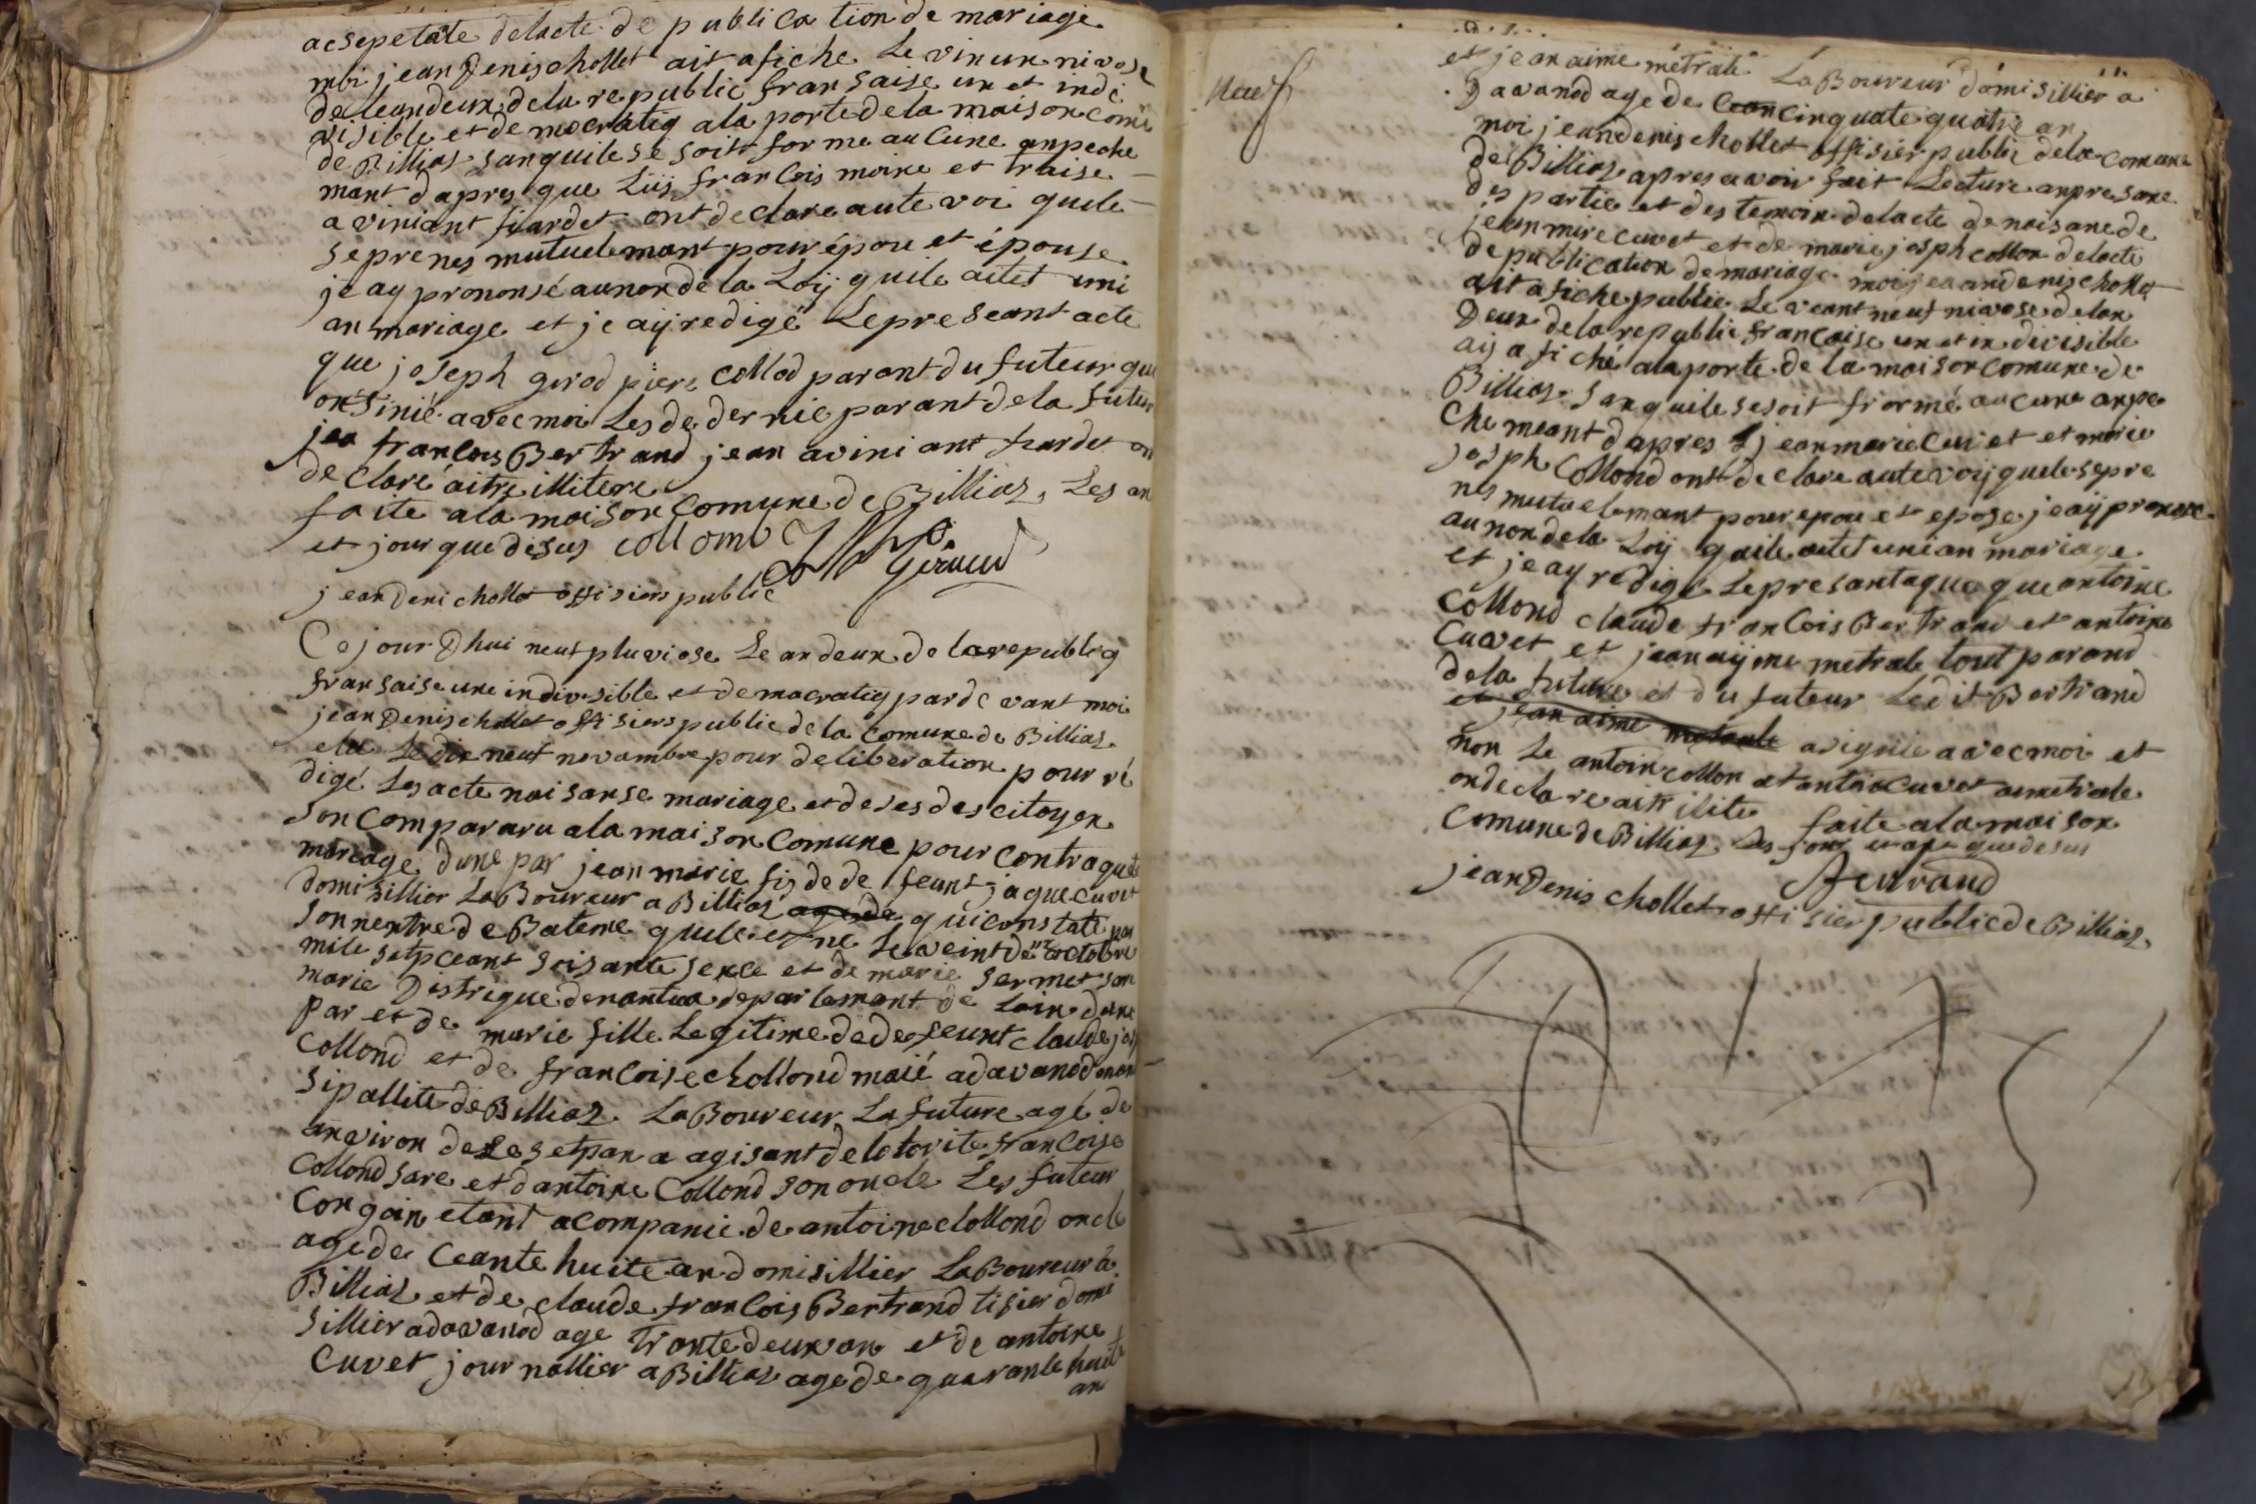 acsepetate delacte de publication de mariage
moi jean Denis chollet ait afiche Le vin un nivose
de leandeux de la republic fransaise un et indi
visible et democratiq ala porte dela maison comu
de Billiaz sanquile se soit forme aucune anpeche
mant dapres que Luis francois moine et traise
a viniant fiardet ont declare aute voi quile
seprenes mutuelemant pour épou et épouse
je ay prononsé aunon de la Loij quile aitet uni
an mariage et je aij redigé Lepreseant acte
que joseph girod piere collod parant du futeur qui
ont sinié avec moi Les de dernie parant dela futur
jea francois Bertrand jean aviniant fiardet on
declaré aitre illitere
faite ala maison comune de Billiaz, Les an
et jour que desus collomb
Giraud
jean Deni chollet offisiers public
Ce jour Dhui neuf pluviose Le andeux de larepubliq
fransaise une indivisible et democratiq pardevant moi
jean Denis chollet offisiers public de la comune de Billiaz
elu Ledix neuf novambre pour deliberation pour ré
digé Les acte naisanse mariage et deses des citoyen
son compararu ala maison Comune pour contraque
mariage dune par jean marie fis de defeunt jaque cuvet
domisillier LaBoureur a Billiaz agede qui constate par
sonnextre de Bateme quile est ne Leveint de octobre
mile setpceant soisante sexe et de marie sermet san
marie Distrique denantua departemant de Lain dune
par et de marie fille Legitime de defeunt claude jos
Collond et de francoise chollond maié adavanod muni
sipallite de Billiaz. LaBoureur La future agé de
anviron dese setpan a agisant delotorite francoise
Collond sare et dantoine Collond son oncle Les futeur
Congoin etant acompanie de antoine clollond oncle
agede ceante huite an domisillier LaBoureur a
Billiaz et de claude francois Bertrand tisier domi
sillier adavanod age Trante deux an et de antoine
Cuvet journallier a Billiaz agede quarante huite
an
Neuf
et jean aime métrale LaBoureur domisillier a
Davanod age de cinquate quatre an
moi jeandenis chollet offisier public dela comune
de Billiaz apres avoir fait Lecture anpresane
des partie et des temoin delacte de naisanede
jean mire cuvet et de marie josph collon delacte
de publication de mariage moi jeandenis chollet
ait afiche public Le veant neuf nivose delan
Deux dela republic francaise un et in divisible
aij afiché alaporte de la maison comune de
Billiaz sanquile sesoit frormé aucune anpe
chemeant dapres q jeanmarie cuvet et marie
josph Collond ont declare aute voij quilesepre
nes mutuelmant pour epou et epose je aij prononce
aunon dela Loij quile aitet uni an mariage
et je ay redigé Lepresantaque que antoine
Collond claude francois Bertrand et antoine
Cuvet et jean aijme metrale tout parand
dela future et du futeur Ledit Bertrand
et jean aime metrale asignie avec moi et
non Le antoin collon et antoi cuvet aimetrale
ondeclare aitr ilite faite ala maison
Comune de Billiaz Les jour et an que desus
Bertrand
jean Denis chollet offisier public de Billiaz